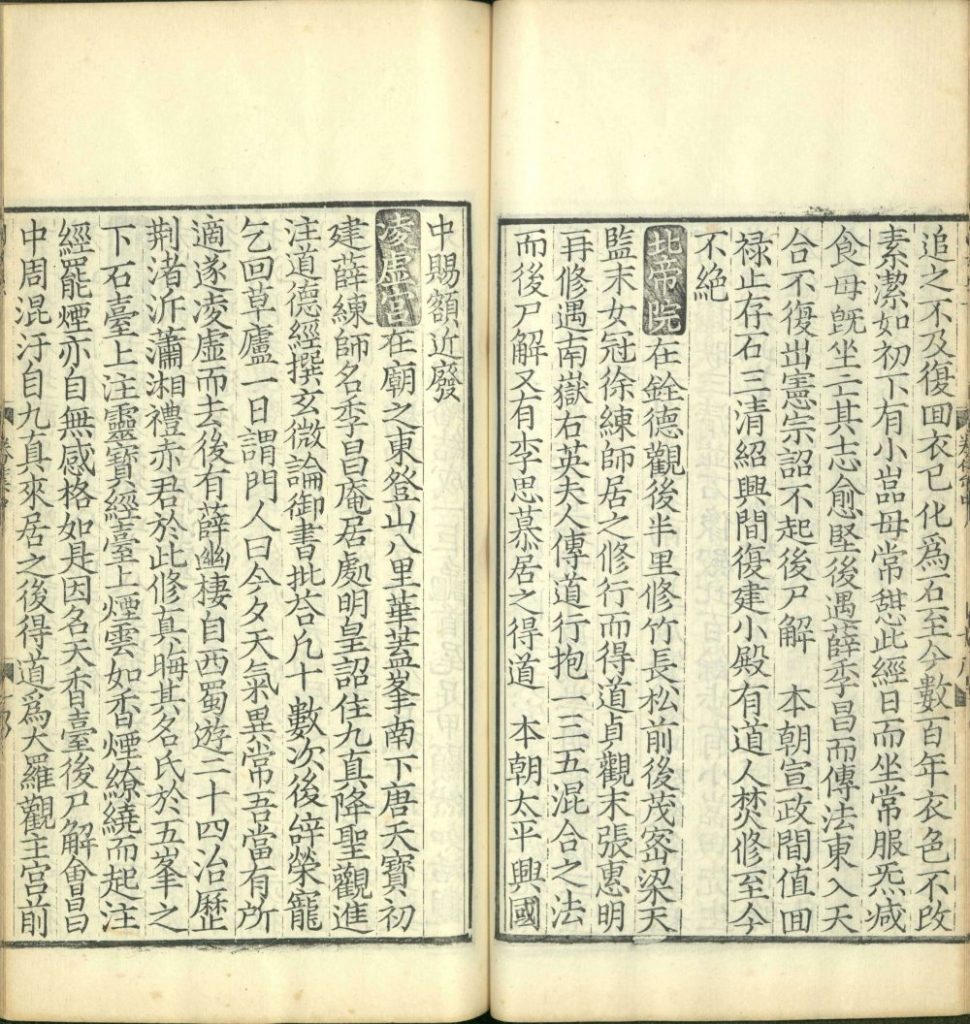 追之不及復回衣已化爲石至今數百年衣色不改
素潔如初下有小嵓毋常憇此經日而坐常服炁减
食毋旣坐亡其志愈堅後遇薛季昌而傳法東入天
合不復出憲宗詔不起後尸解　本朝宣政間值回
禄止存石三清紹興間復建小殿有道人焚修至今
不絶
北帝院在銓德觀後半里修竹長松前後茂宻梁天
監末女冠徐練師居之修行而得道貞觀末張惠明
再修遇南嶽右英夫人傳道行抱一三五混合之法
而後尸解又有李思慕居之得道　本朝太平興國
中賜額近廢
凌虛宮在廟之東登山八里華蓋峯南下唐天寶初
建薛練師名季昌庵居處明皇詔住九真降聖觀進
注道德經撰玄微論御書批荅凡十數次後辝榮寵
乞回草廬一日謂門人曰今夕天氣異常吾當有所
適遂凌虛而去後有薛幽棲自西蜀遊二十四治歷
荆渚泝瀟湘禮赤君於此修真晦其名氏於五峯之
下石臺上注靈寶經臺上煙雲如香煙繚繞而起注
經罷煙亦自無感格如是因名天香臺後尸解會昌
中周混汙自九真來居之後得道爲大羅觀主宮前